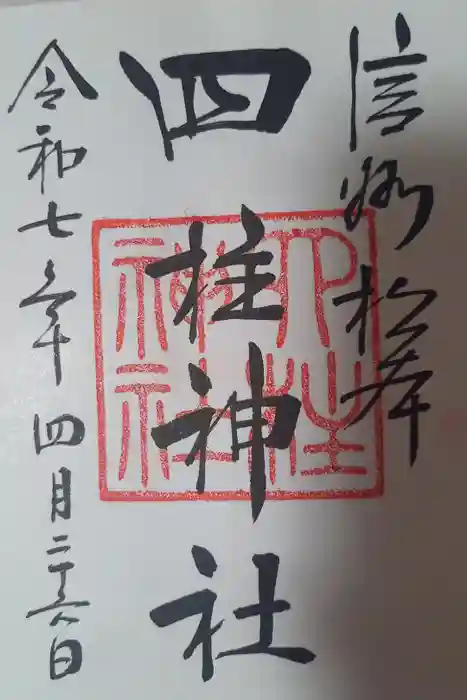 信州松本
四柱神社
四柱
神社
令和七年四月二十六日